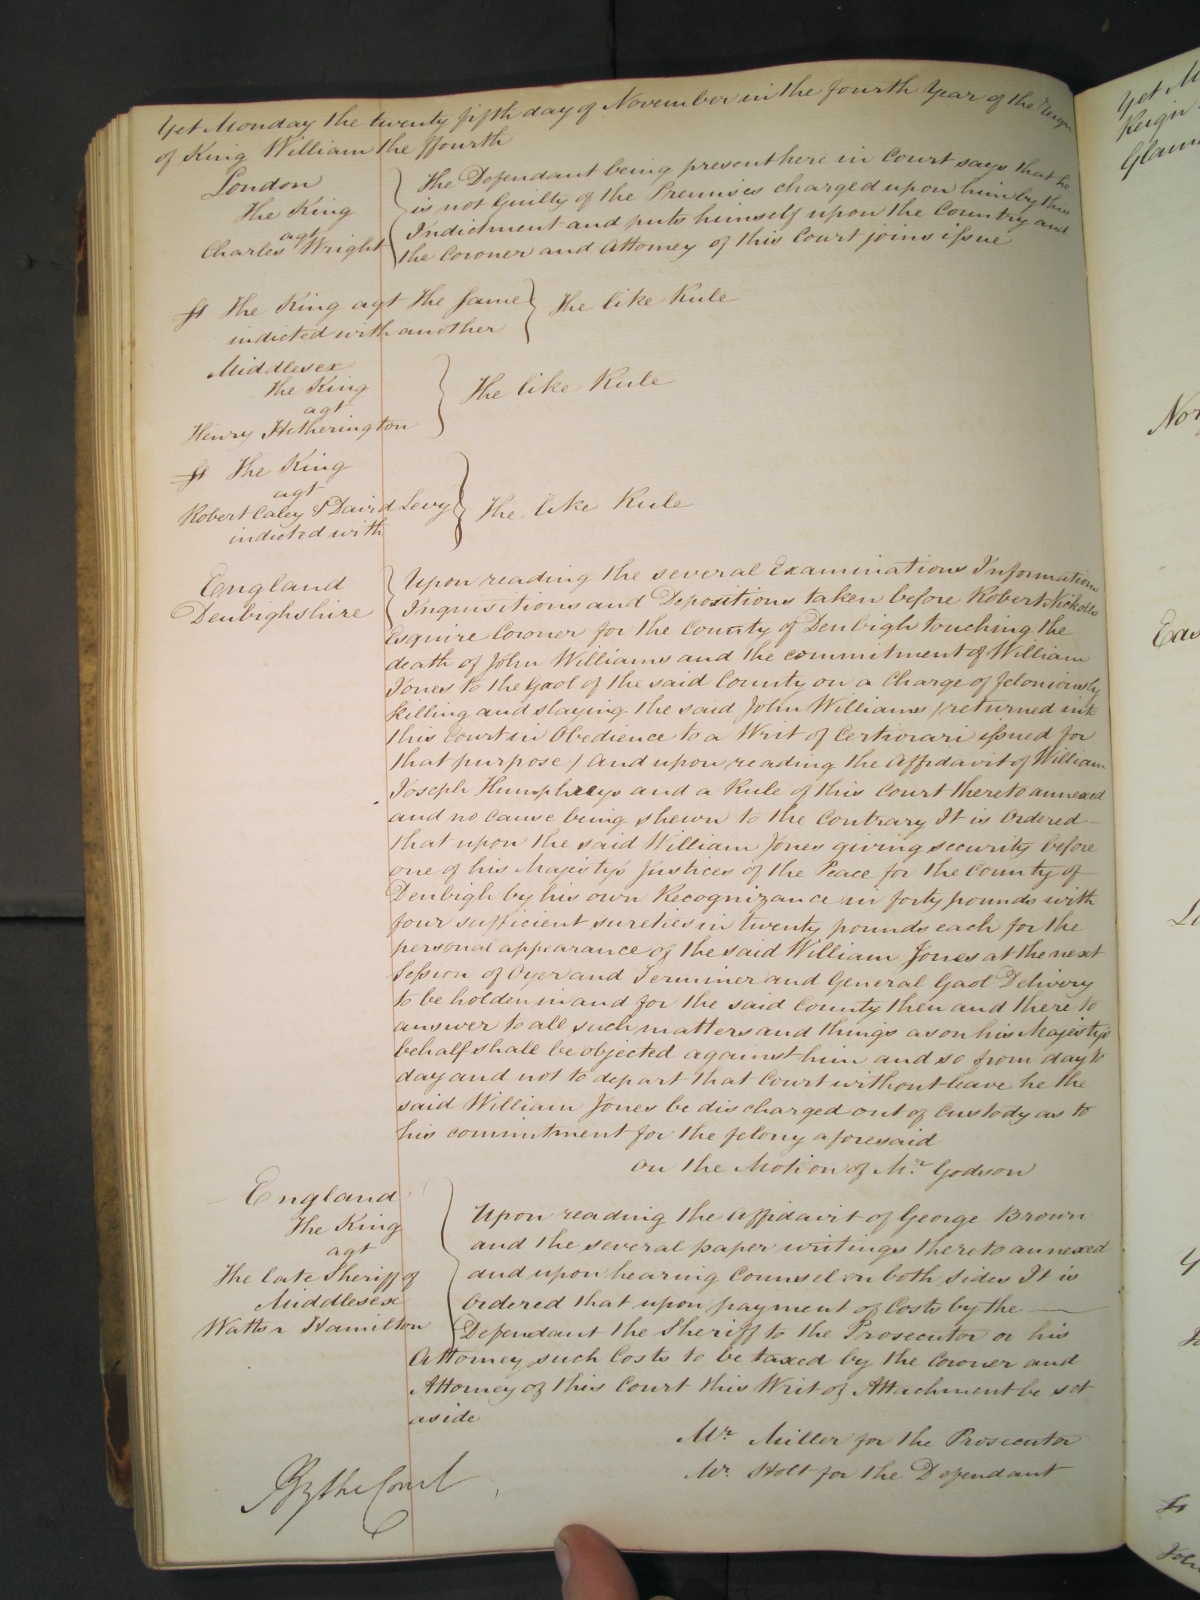 Yet Monday the twenty fifth day of November in the fourth Year of the Reign
of King William the ffourth
London
The King
agt
Charles Wright
The Defendant being present here in Court says that he
is not Guilty of the Premises charged upon him by this
Indictment and puts himself upon the Country and
the Coroner and Attorney of this Court joins issue
The King agt The Same
indicted with another
The like Rule
Middlesex
The King
agt
Henry Hetherington
The like Rule
The King
agt
Robert Caley & David Levy
indicted with
The like Rule
England
Denbighshire
Upon reading the several Examinations Informations
Inquisitions and Depositions taken before Robert Nickolls
Esquire Coroner for the County of Denbigh touching the
death of John Williams and the commitment of William
Jones to the Gaol of the said County on a Charge of feloniously
killing and slaying the said John Williams (returned into
this Court in Obedience to a Writ of Certiorari issued for
that purpose) And upon reading the Affidavit of William
Joseph Humphreys and a Rule of this Court thereto annexed
and no cause being shewn to the Contrary It is Ordered
that upon the said William Jones giving security before
one of his Majesty's Justices of the Peace for the County of
Denbigh by his own Recognizance in forty pounds with
four sufficient sureties in twenty pounds each for the
personal appearance of the said William Jones at the next
Session of Oyer and Terminer and General Gaol Delivery
to be holden in and for the said County then and there to
answer to all such matters and things as on his Majesty's
behalf shall be objected against him and so from day to
day and not to depart that Court without leave he the
said William Jones be discharged out of Custody as to
his commitment for the felony aforesaid
On the Motion of Mr. Godson
England
The King
agt
The late Sheriff of
Middlesex
Watts v Hamilton
Upon reading the Affidavit of George Brown
and the several paper writings thereto annexed
and upon hearing Counsel on both sides It is
Ordered that upon payment of Costs by the
Defendant the Sheriff to the Prosecutor or his
Attorney such Costs to be taxed by the Coroner and
Attorney of this Court this Writ of Attachment be set
aside
Mr. Miller for the Prosecutor
Mr. Holt for the Defendant
By the Court
Yet M
Reign
Nor
Lo